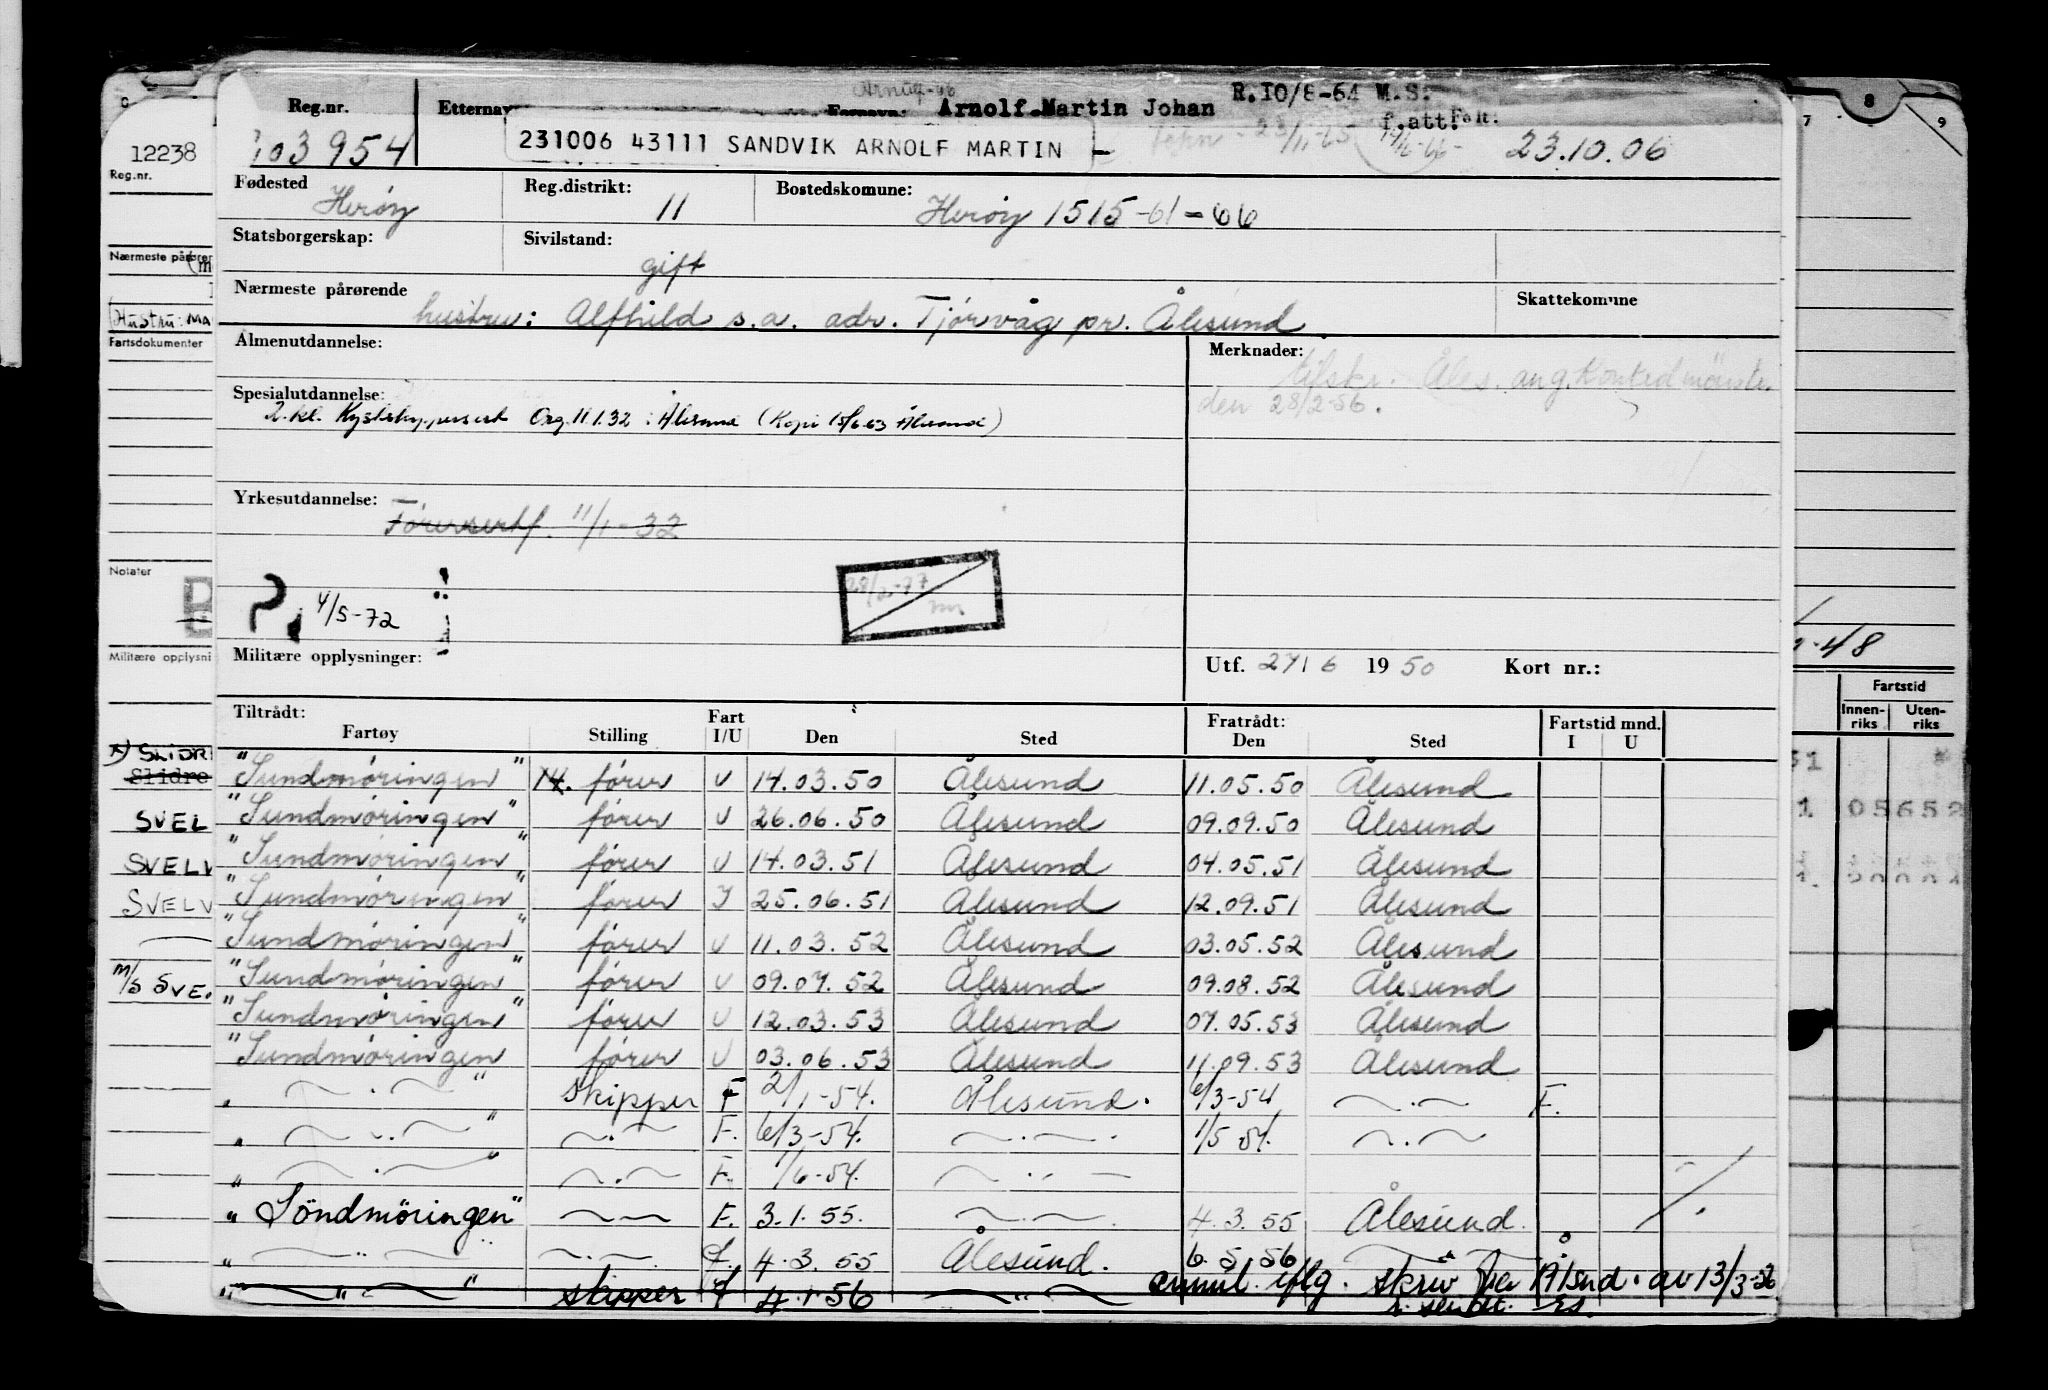 Reg.nr. Etternavn Arnolf Martin Johan R.10/8-64 M.S. f.att. Født:
103954 231006 43111 SANDVIK ARNOLF MARTIN 23.10.06
12238
Reg.nr.
Fødested Herøy Reg.distrikt: 11 Bostedskomune: Herøy 1515-61-66
Statsborgerskap: Sivilstand: gift
Nærmeste pårørende Skattekomune
hustru: Alfhild s.a. adr. Tjørvåg pr. Ålesund
Hustru: MA
Fartsdokumenter
Almenutdannelse: Merknader:
tilskr. Åles. ang. Kontrdmønstr.
den 28/2-56.
Spesialutdannelse:
2.kl. Kystskippersert Org. 11.1.32 i Ålesund (Kopi 15/6 63 Ålesund)
Yrkesutdannelse: Førersertf. 11/1-32
Notater
P. 4/5-72 28/2-77
Militære opplysninger: Utf. 27/6 1950 Kort nr.:
Tiltrådt: Fartøy Stilling Fart I/U Den Sted Fratrådt: Den Sted Fartstid mnd. I U
"Sundmøringen" fører U 14.03.50 Ålesund 11.05.50 Ålesund
"Sundmøringen" fører U 26.06.50 Ålesund 09.09.50 Ålesund
"Sundmøringen" fører U 14.03.51 Ålesund 04.05.51 Ålesund
"Sundmøringen" fører I 25.06.51 Ålesund 12.09.51 Ålesund
"Sundmøringen" fører U 11.03.52 Ålesund 03.05.52 Ålesund
"Sundmøringen" fører U 09.07.52 Ålesund 09.08.52 Ålesund
"Sundmøringen" fører U 12.03.53 Ålesund 07.05.53 Ålesund
"Sundmøringen fører U 03.06.53 Ålesund 11.09.53 Ålesund
" —·— " skipper F 2/1-54. Ålesund. 6/3-54 —·— F.
" —·— " —·— F. 6/3-54. —·— 1/5 54. —·—
" —·— " —·— F. 1/6-54. —·—
" Söndmöringen" —— F. 3.1.55. —·— 4.3.55 Ålesund.
" —"— —·— f. 4.3.55 Ålesund. 6.5.56
" —"— " skipper f 4.1.56 —"— annul. iflg. skriv fra Ålsnd. av 13/3-56
SLIDR
Slidre
SVEL
SVELV
SVELV
M/S SVE
8
7 9
-48
Fartstid
Innenriks Utenriks